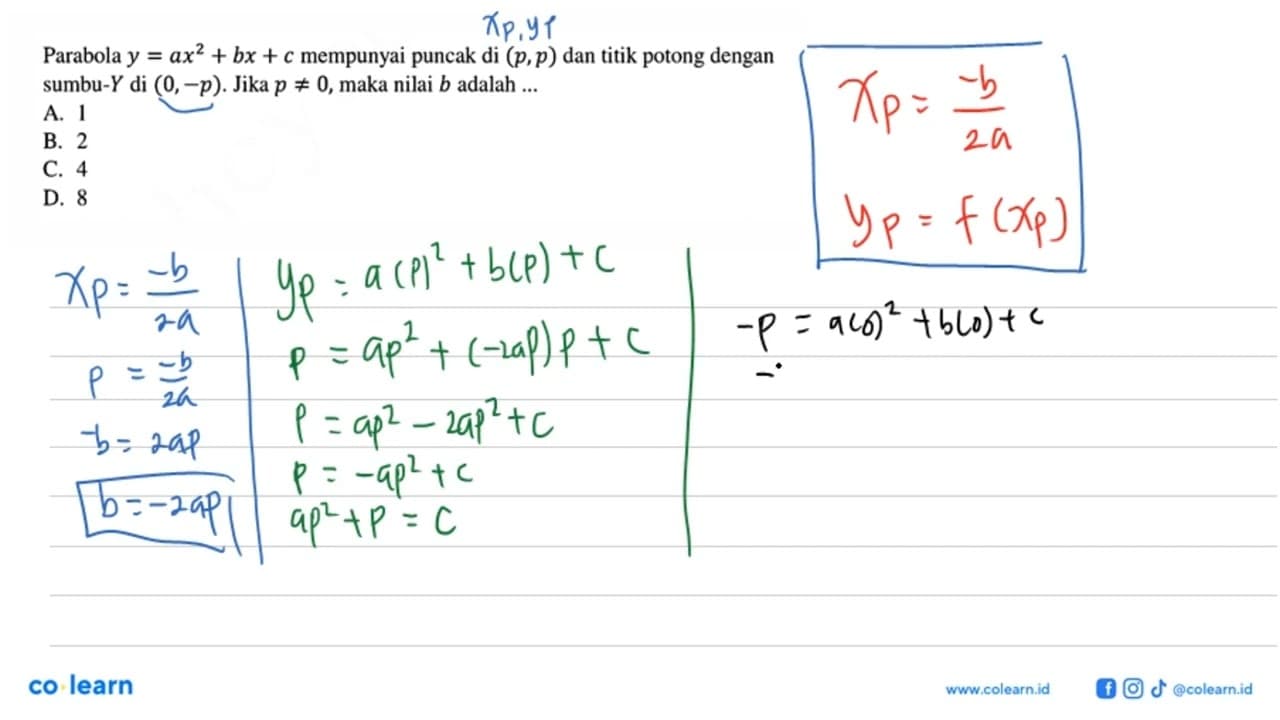 xp, yp
Parabola y = ax² + bx + c mempunyai puncak di (p, p) dan titik potong dengan
sumbu-Y di (0, −p). Jika p ≠ 0, maka nilai b adalah ...
A. 1
B. 2
C. 4
D. 8
xp = -b/2a
yp = f(xp)
xp = -b/2a
p = -b/2a
-b = 2ap
b = -2ap
yp = a(p)² + b(p) + c
p = ap² + (-2ap)p + c
p = ap² - 2ap² + c
p = -ap² + c
ap² + p = c
-p = a(0)² + b(0) + c
co learn
www.colearn.id
@colearn.id